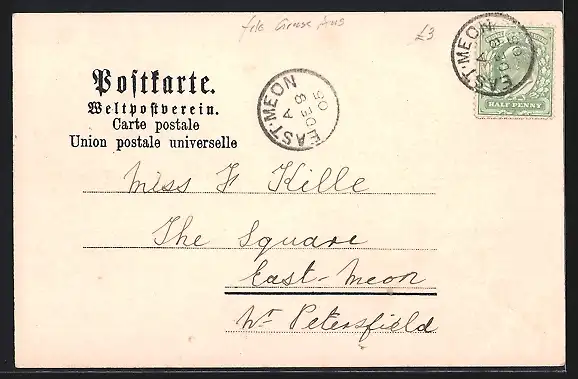 £3
Postkarte.
Weltpostverein.
Carte postale
Union postale universelle
EAST·MEON
A
EAST·MEON
A
HALF PENNY
Miss F Kille
The Square
East-Meon
Nr Petersfield